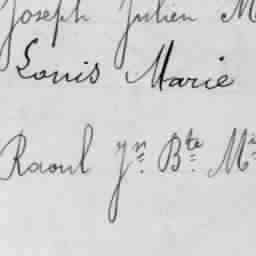 Joseph Julien M
Louis Marie
Raoul Jn Bte M